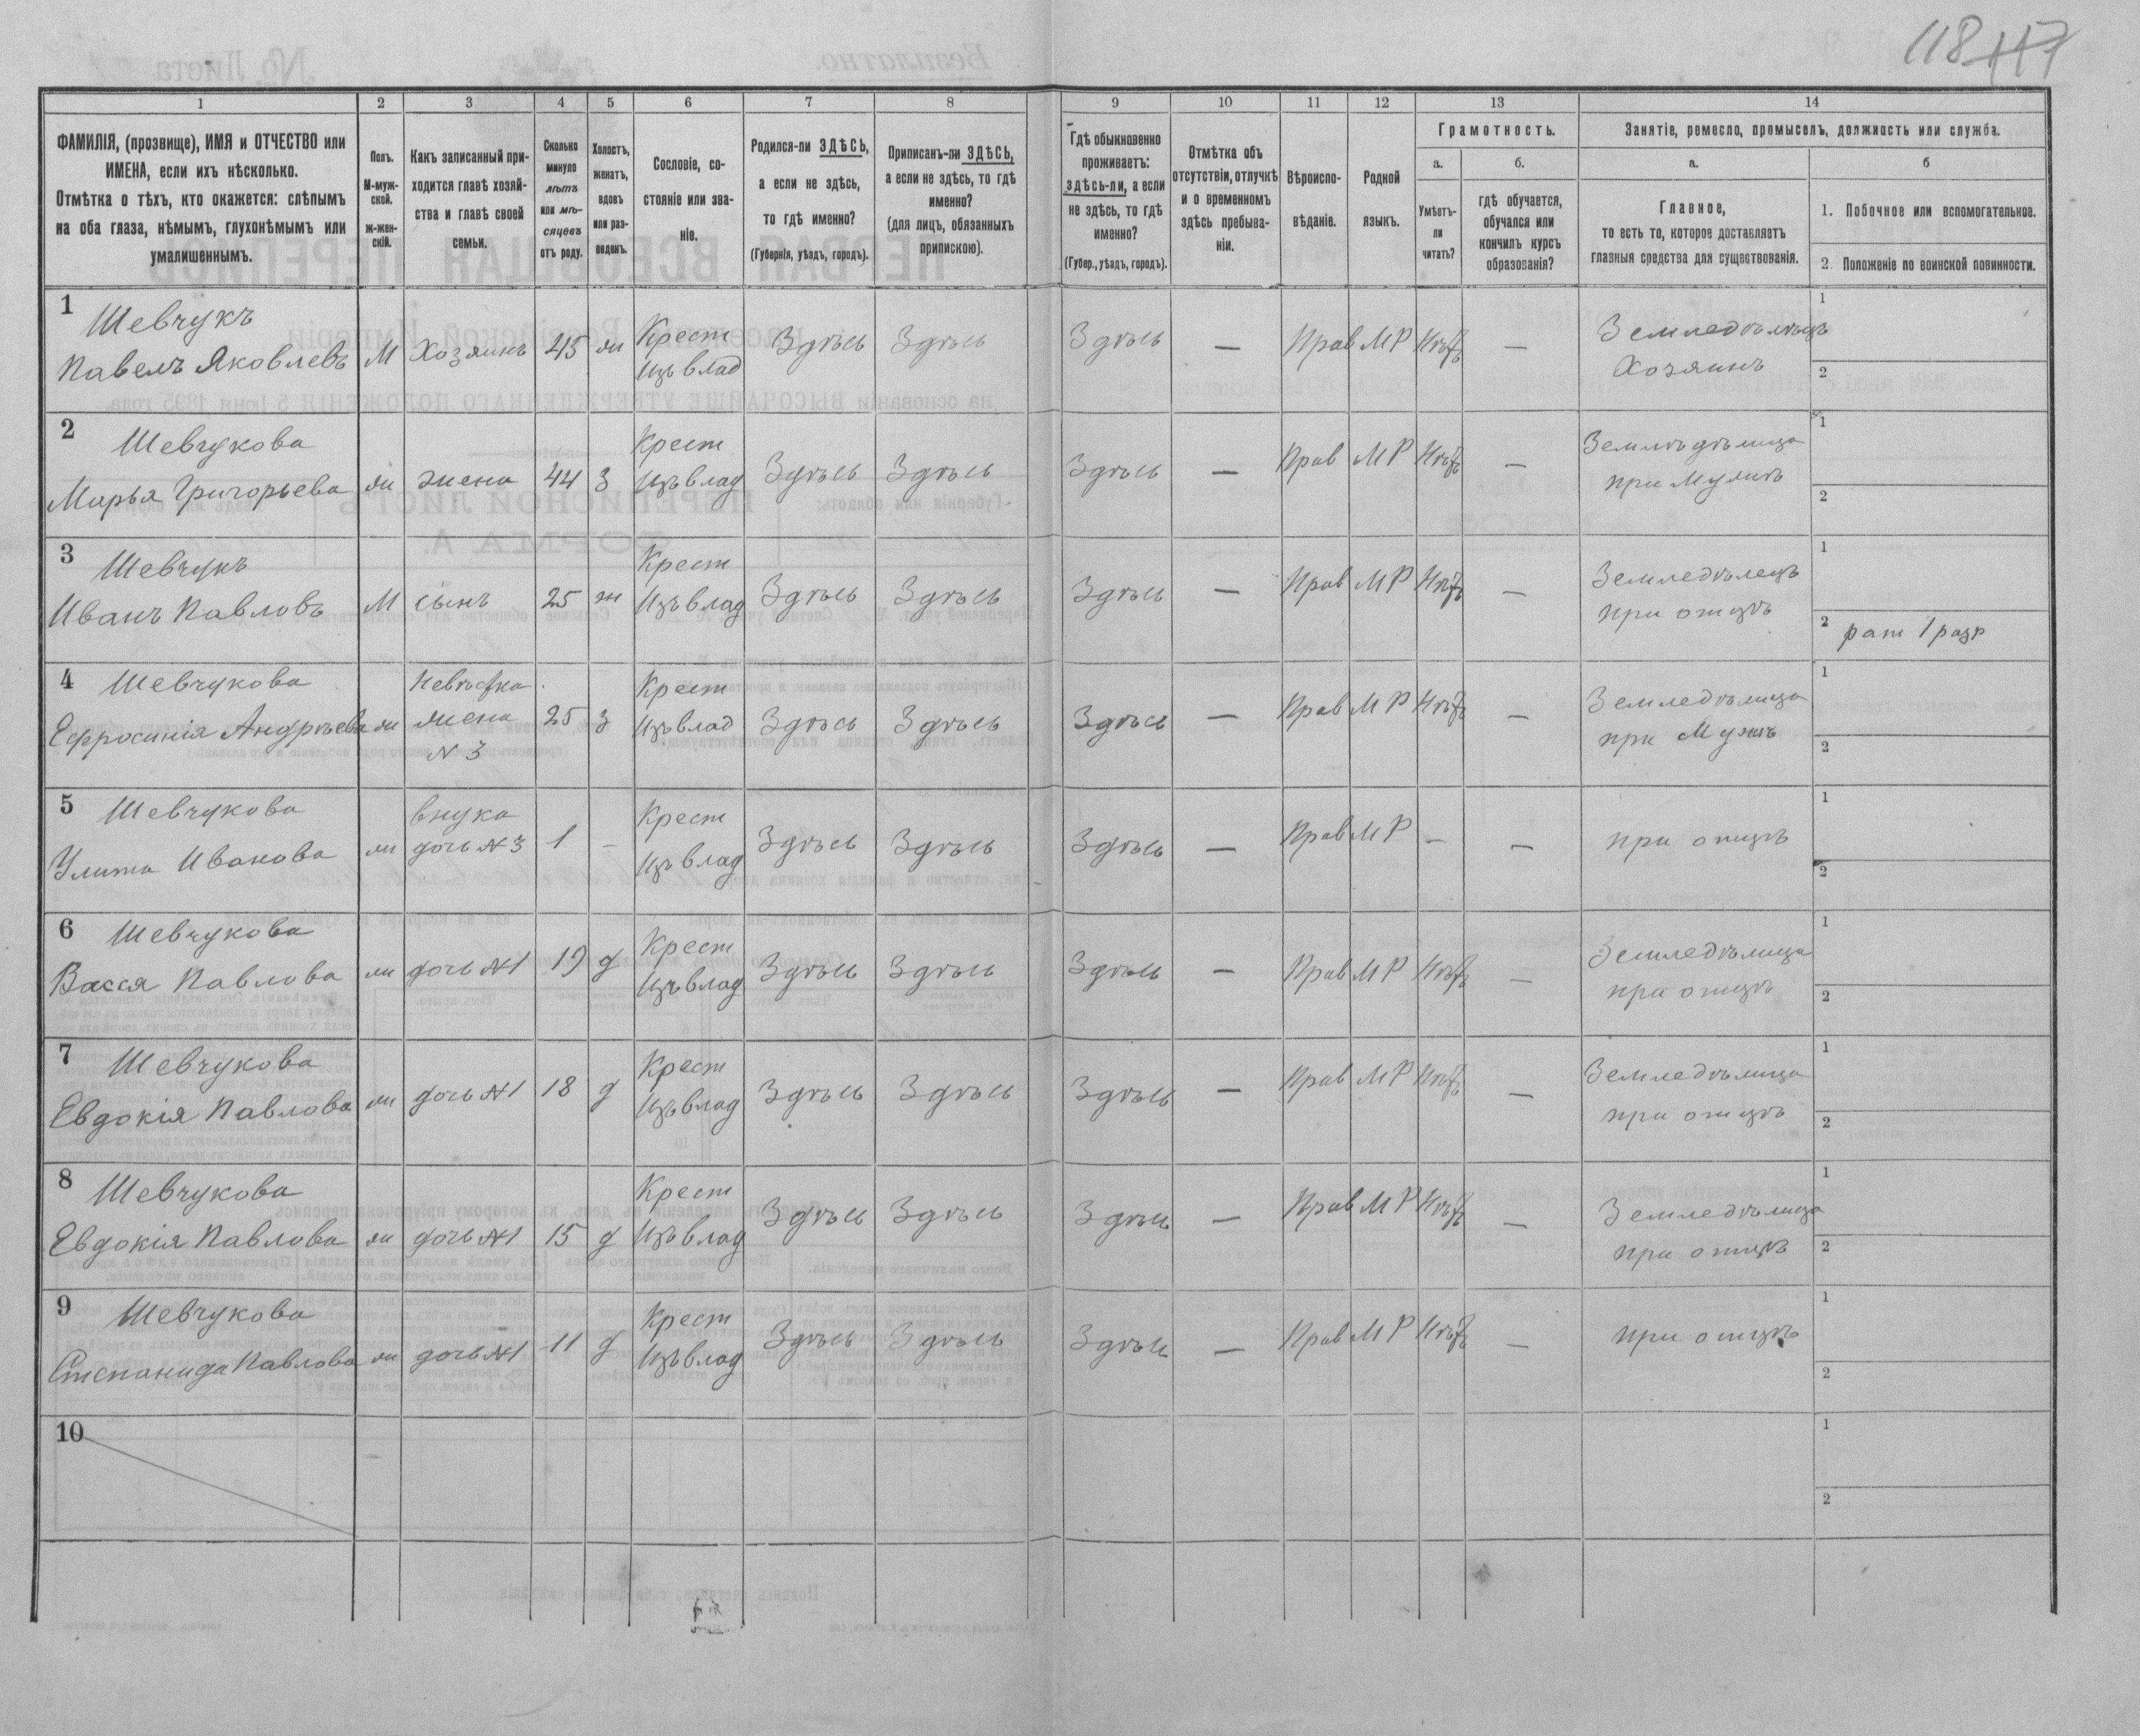 118 117
1 2 3 4 5 6 7 8 9 10 11 12 13 14
ФАМИЛІЯ, (прозвище), ИМЯ и ОТЧЕСТВО или
ИМЕНА, если ихъ нѣсколько.
Отмѣтка о тѣхъ, кто окажется: слѣпымъ
на оба глаза, нѣмымъ, глухонѣмымъ или
умалишеннымъ.
Полъ.
М-муж-
ской.
ж-жен-
скій.
Какъ записанный при-
ходится главѣ хозяй-
ства и главѣ своей
семьи.
Сколько
минуло
лѣтъ
или мѣ-
сяцевъ
отъ роду.
Холостъ,
женатъ,
вдовъ
или раз-
веденъ.
Сословіе, со-
стояніе или зва-
ніе.
Родился-ли ЗДѢСЬ,
а если не здѣсь,
то гдѣ именно?
(Губернія, уѣздъ, городъ).
Приписанъ-ли ЗДѢСЬ,
а если не здѣсь, то гдѣ
именно?
(для лицъ, обязанныхъ
припискою).
Гдѣ обыкновенно
проживаетъ:
здѣсь-ли, а если
не здѣсь, то гдѣ
именно?
(Губер., уѣздъ, городъ).
Отмѣтка объ
отсутствіи, отлучкѣ
и о временномъ
здѣсь пребыва-
ніи.
Вѣроиспо-
вѣданіе.
Родной
языкъ.
Грамотность.
а.
Умѣетъ-
ли
читать?
б.
гдѣ обучается,
обучался или
кончилъ курсъ
образованія?
Занятіе, ремесло, промыселъ, должность или служба.
а.
Главное,
то есть то, которое доставляетъ
главныя средства для существованія.
б
1. Побочное или вспомогательное.
2. Положеніе по воинской повинности.
1 Шевчукъ Крест Землѣдѣлецъ 1
Павелъ Яковлевъ М Хозяинъ 45 ж изъ влад Здѣсь Здѣсь Здѣсь — Прав МР Нѣтъ — Хозяинъ 2
2 Шевчукова Крест Земледѣлица 1
Марья Григорьева ж жена 44 З изъ влад Здѣсь Здѣсь Здѣсь — Прав МР Нѣтъ — при Мужѣ 2
3 Шевчукъ Крест Земледѣлецъ 1
Иванъ Павловъ М сынъ 25 ж изъ влад Здѣсь Здѣсь Здѣсь — Прав МР Нѣтъ — при отцѣ 2 рат 1 разр
4 Шевчукова Невѣстка Крест Земледѣлица 1
Ефросинія Андрѣева ж жена 25 З изъ влад Здѣсь Здѣсь Здѣсь — Прав МР Нѣтъ — при Мужѣ 2
N 3
5 Шевчукова внука Крест 1
Улита Иванова ж дочь N 3 1 — изъ влад Здѣсь Здѣсь Здѣсь — Прав МР — — при отцѣ 2
6 Шевчукова Крест Земледѣлица 1
Васса Павлова ж дочь N1 19 д изъ влад Здѣсь Здѣсь Здѣсь — Прав МР Нѣтъ — при отцѣ 2
7 Шевчукова Крест Земледѣлица 1
Евдокія Павлова ж дочь N1 18 д изъ влад Здѣсь Здѣсь Здѣсь — Прав МР Нѣтъ — при отцѣ 2
8 Шевчукова Крест Земледѣлица 1
Евдокія Павлова ж дочь N1 15 д изъ влад Здѣсь Здѣсь Здѣсь — Прав МР Нѣтъ — при отцѣ 2
9 Шевчукова Крест 1
Степанида Павлова ж дочь N1 11 д изъ влад Здѣсь Здѣсь Здѣсь — Прав МР Нѣтъ — при отцѣ 2
10 1
2